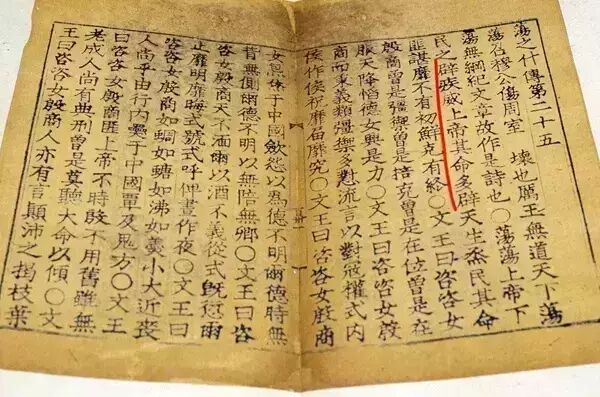 蕩之什傳第二十五
蕩召穆公傷周室 壞也厲王無道天下蕩
蕩無綱紀文章故作是詩也〇蕩蕩上帝下
民之辟疾威上帝其命多辟天生烝民其命
匪諶靡不有初鮮克有終〇文王曰咨咨女
殷商曾是彊禦曾是掊克曾是在位曾是在
服天降慆德女興是力〇文王曰咨咨女殷
商而秉義類彊禦多懟流言以對寇攘式內
侯作侯祝靡屆靡究〇文王曰咨咨女殷商
女炰烋于中國斂怨以為德不明爾德時無
背無側爾德不明以無陪無卿〇文王曰咨
咨女殷商天不湎爾以酒不義從式既愆爾
止靡明靡晦式號式呼俾晝作夜〇文王曰
咨咨女殷商如蜩如螗如沸如羹小大近喪
人尚乎由行內奰于中國覃及鬼方〇文王
曰咨咨女殷商匪上帝不時殷不用舊雖無
老成人尚有典刑曾是莫聽大命以傾〇文
王曰咨咨女殷商人亦有言顛沛之揭枝葉